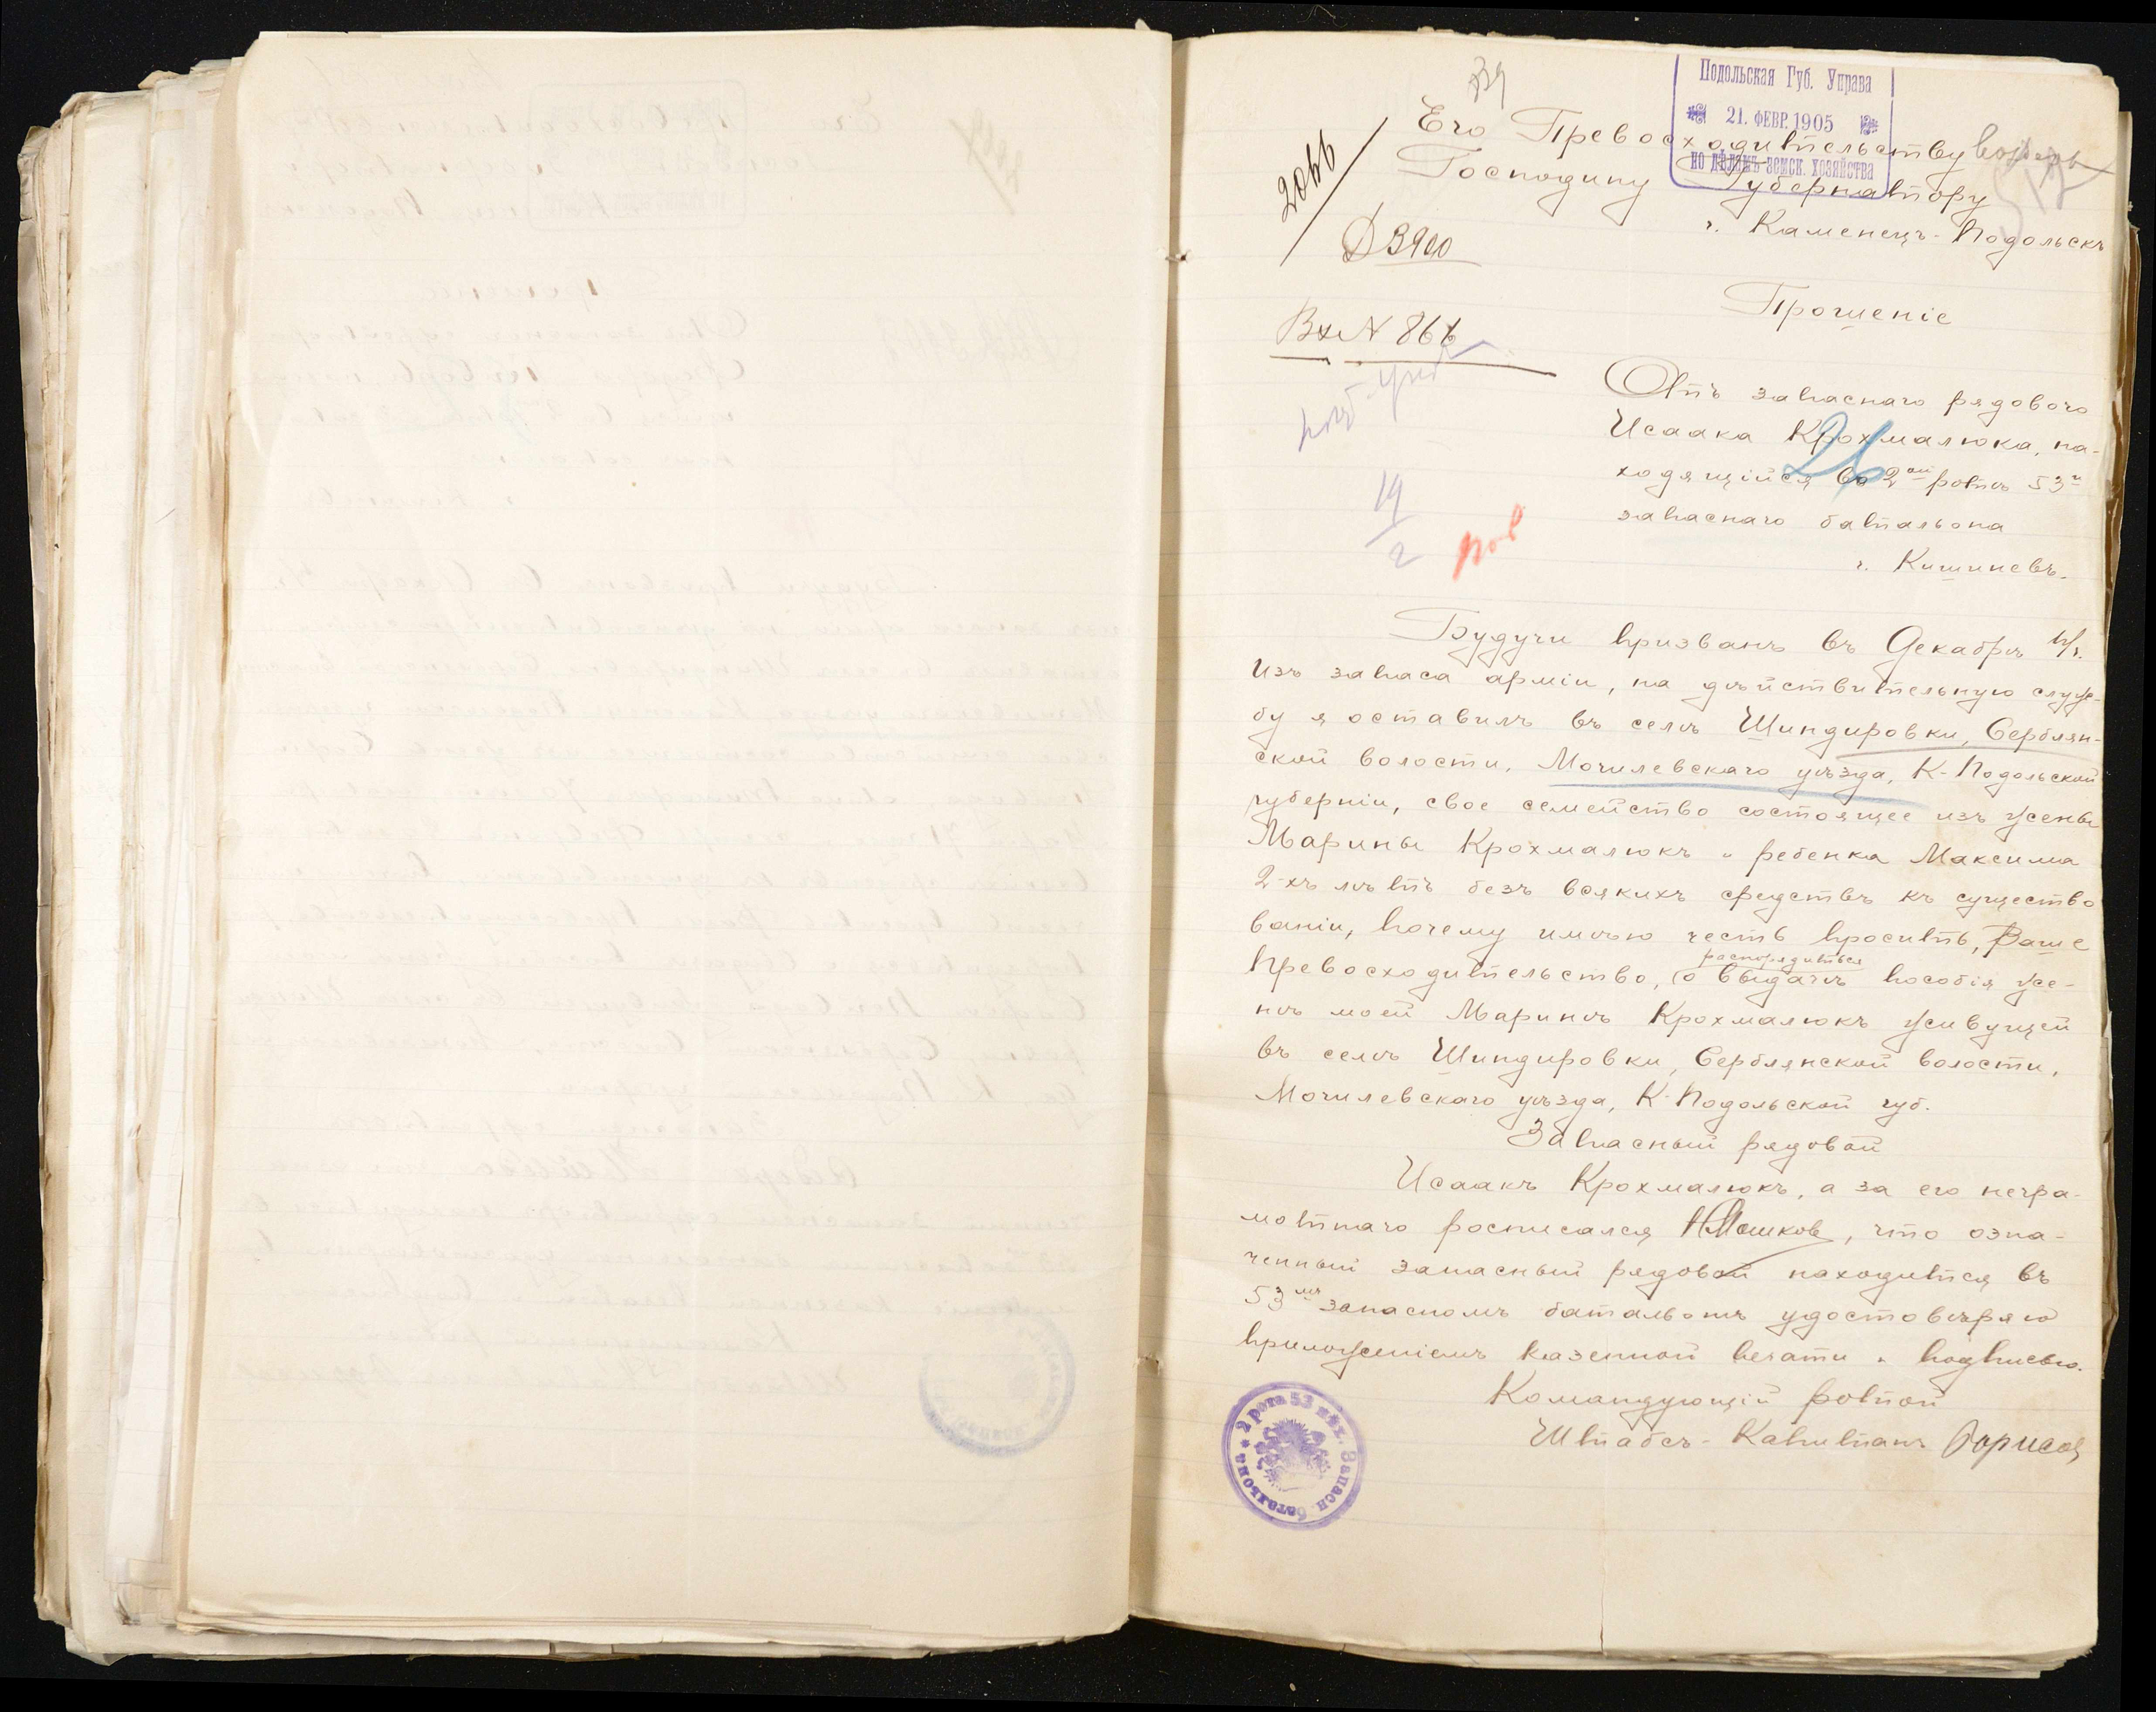 Подольская Губ. Управа
21. ФЕВР. 1905
по дѣламъ земск. хозяйства
Его Превосходительству
Господину Губернатору
г. Каменецъ-Подольскъ
Д 3900
Прошеніе
Вх N 86
Отъ запаснаго рядового
Исаака Крохмалюка, на-
ходящійся во 2ой ротѣ 53го
26
запаснаго батальона
г. Кишиневъ.
19/2
Будучи призванъ въ Декабрѣ п/г.
изъ запаса арміи, на дѣйствительную служ-
бу я оставилъ въ селѣ Шиндировки, Серблян-
ской волости, Могилевскаго уѣзда, К-Подольской
губерніи, свое семейство состоящее изъ жены
Марины Крохмалюкъ и ребенка Максима
2-хъ лѣтъ безъ всякихъ средствъ къ существо
ваніи, почему имѣю честь просить, Ваше
Превосходительство, распорядиться о выдачѣ пособія же-
нѣ моей Маринѣ Крохмалюкъ живущей
въ селѣ Шиндировки, Серблянской волости,
Могилевскаго уѣзда, К-Подольской губ.
Запасный рядовой
Исаакъ Крохмалюкъ, а за его негра-
мотнаго росписался Н Мошков, что озна-
ченный запасный рядовой находится въ
53мъ запасномъ батальонѣ удостовѣряю
приложеніемъ казенной печати и подписью.
Командующій ротой
Штабсъ-Капитанъ Борисов
2 рота 53 пѣх. Запасн. батальона